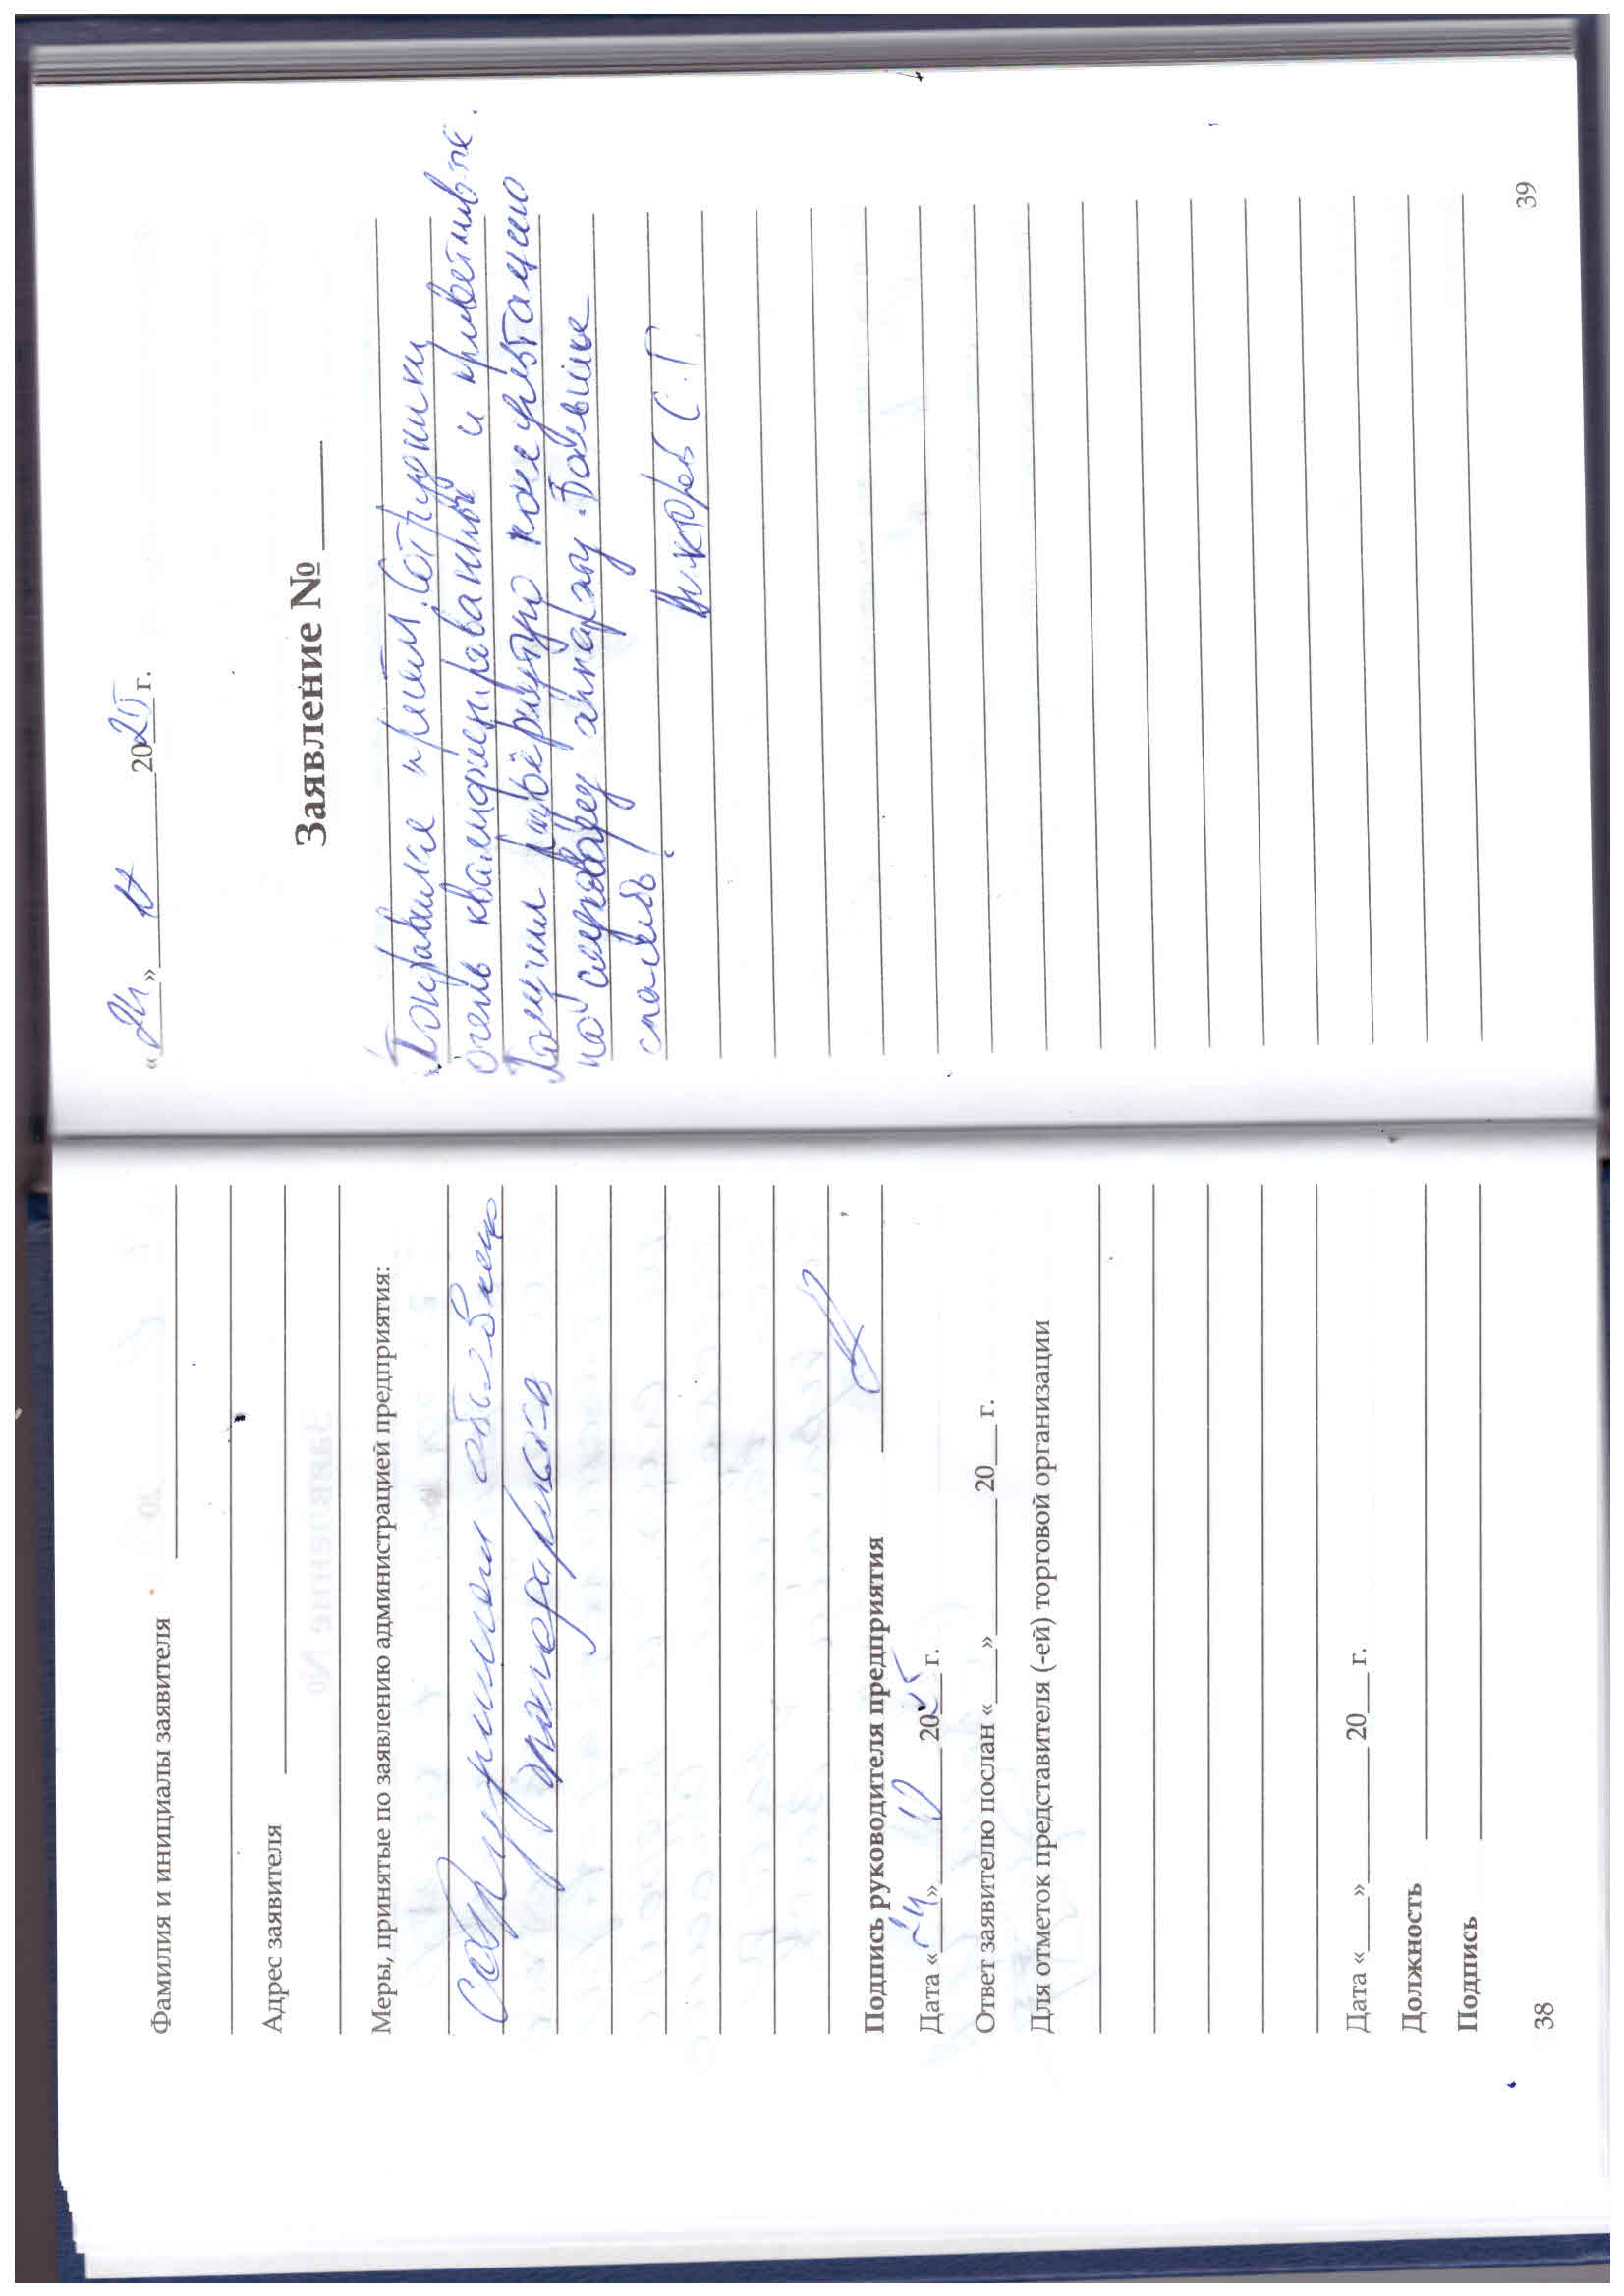 Фамилия и инициалы заявителя
Адрес заявителя
Меры, принятые по заявлению администрацией предприятия:
Сотрудникам объявлена
благодарность
Подпись руководителя предприятия
Дата « » 2025 г.
Ответ заявителю послан «___» ______ 20__ г.
Для отметок представителя (-ей) торговой организации
Дата «___» ______ 20__ г.
Должность
Подпись
38
«24» 11 2025 г.
Заявление № ____
Понравился прием. Сотрудники
очень квалифицированный и приветливые.
Получил развёрнутую консультацию
по слуховому аппарату. Большое
спасибо!
С.Г.
39